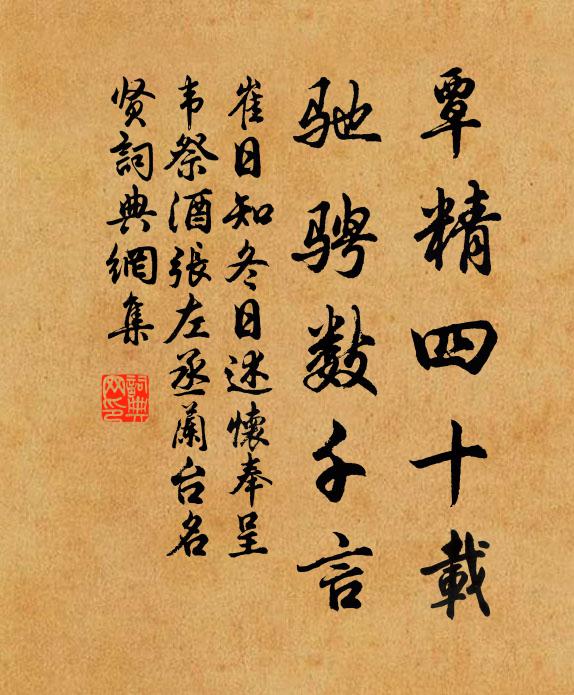 覃精四十載
驰骋数千言
崔日知冬日述懷奉呈
韦祭酒張左丞蘭台名
贤詞典網集
詞典网印